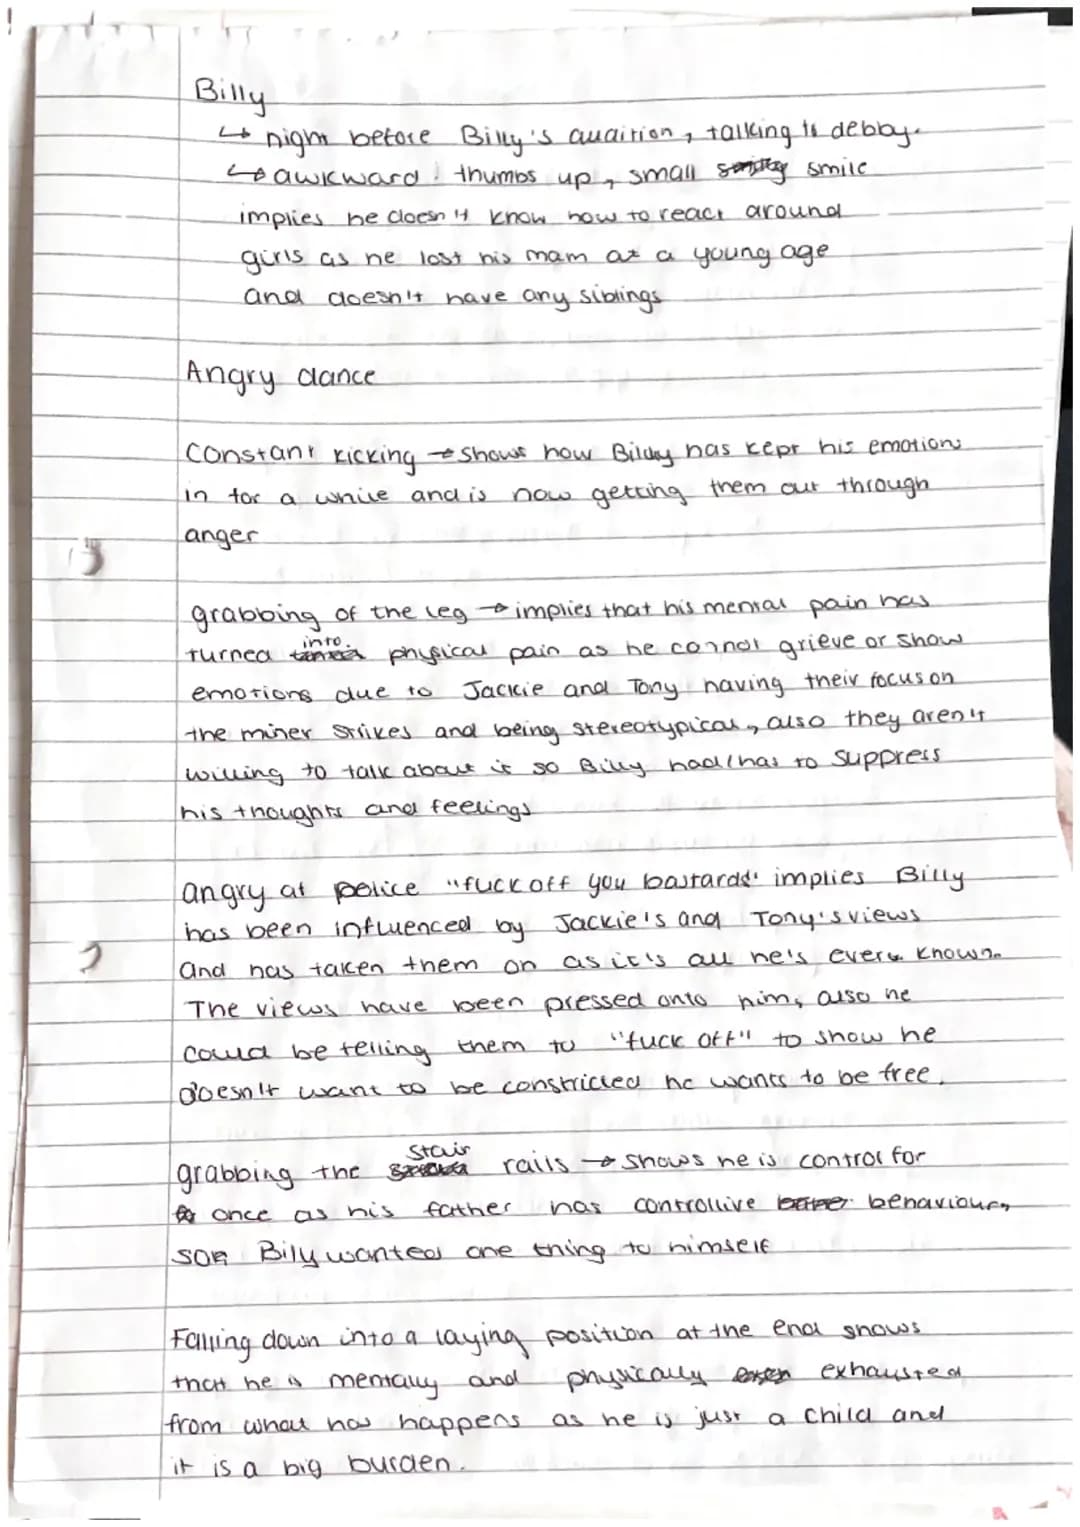 Billy
↳ night before Billy's audition, talking to debby.
↳ awkward: thumbs up, small smile
implies he doesn't know how to react around
girls as he lost his mam at a young age
and doesn't have any siblings
Angry dance
Constant kicking → shows how Billy has kept his emotions
in for a while and is now getting them out through
anger
grabbing of the leg → implies that his mental pain has
turned into physical pain as he cannot grieve or show
emotions due to Jackie and Tony having their focus on
the miner strikes and being stereotypical, also they aren't
willing to talk about it so Billy had/has to suppress
his thoughts and feelings
angry at police "fuck off you bastards" implies Billy
has been influenced by Jackie's and Tony's views
and has taken them on as it's all he's ever known.
The views have been pressed onto him, also he
could be telling them to "fuck off" to show he
doesn't want to be constricted he wants to be free.
grabbing the stair rails → shows he is control for
once as his father has controllive behaviour,
so Bily wanted one thing to himself
Falling down into a laying position at the end shows
that he is mentally and physically exhausted
from what has happens as he is just a child and
it is a big burden.